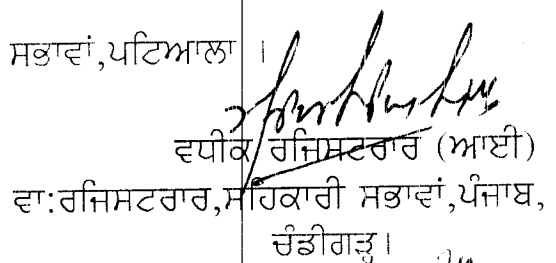 ਸਭਾਵਾਂ,ਪਟਿਆਲਾ ।
ਵਧੀਕ ਰਜਿਸਟਰਾਰ (ਆਈ)
ਵਾ:ਰਜਿਸਟਰਾਰ,ਸਹਿਕਾਰੀ ਸਭਾਵਾਂ,ਪੰਜਾਬ,
ਚੰਡੀਗੜ੍ਹ।